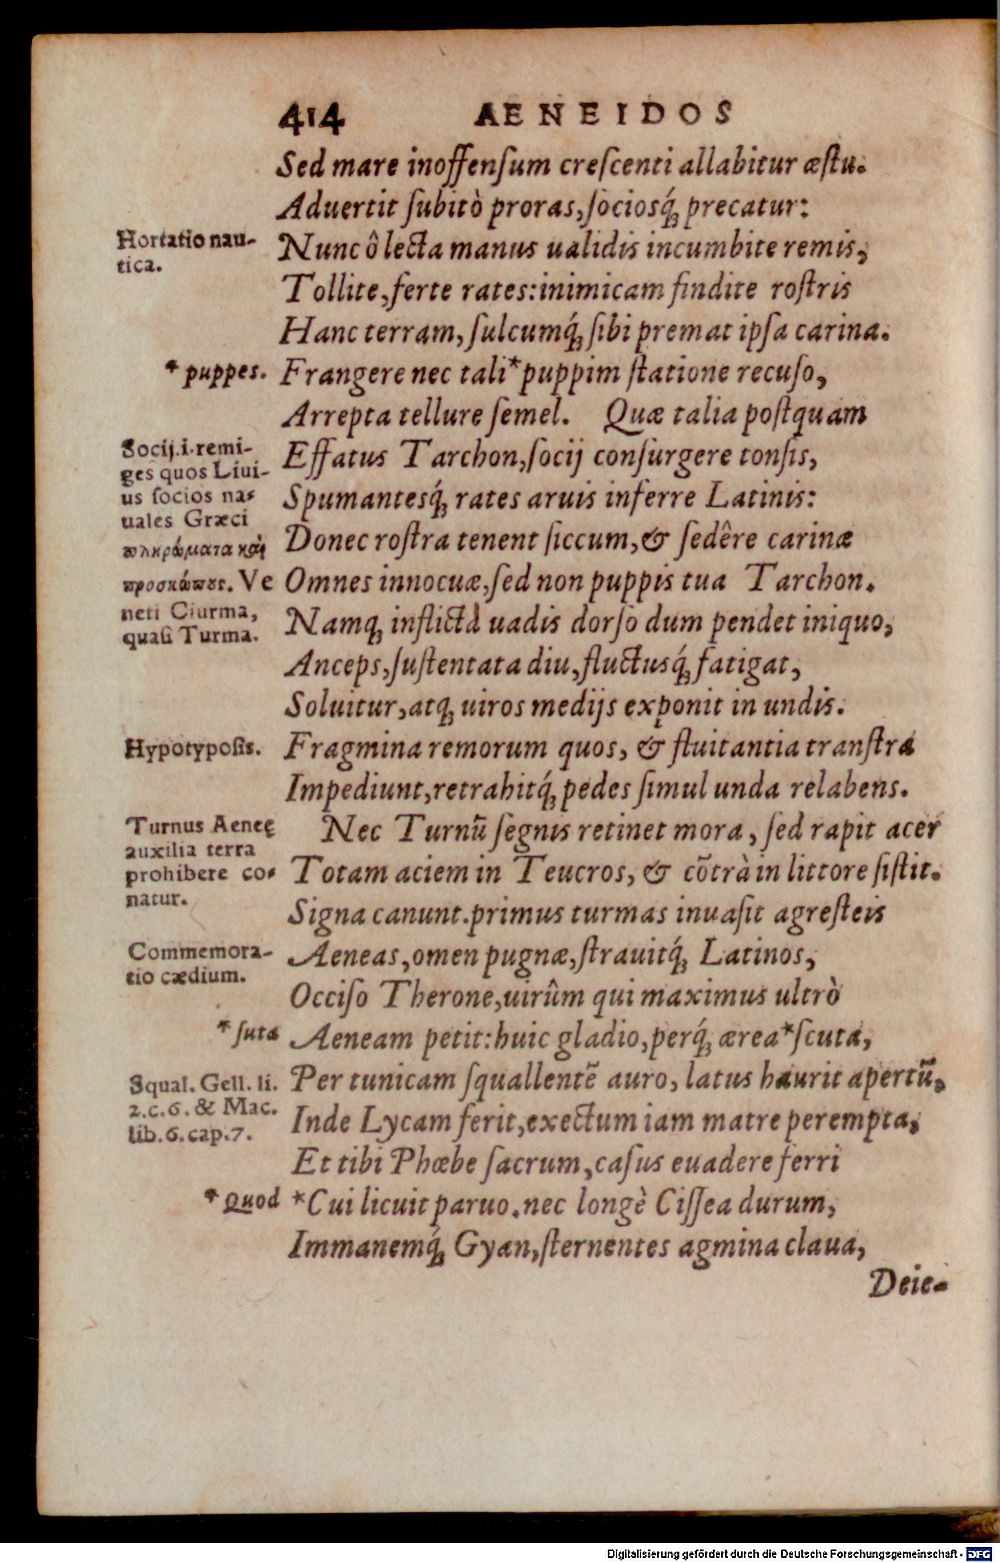 414 AENEIDOS
Sed mare inoffensum crescenti allabitur æstu.
Aduertit subitò proras, sociosq́; precatur:
Hortatio nau-
tica.
Nunc ô lecta manus ualidis incumbite remis,
Tollite, ferte rates: inimicam findite rostris
Hanc terram, sulcumq́; sibi premat ipsa carina.
* puppes.
Frangere nec tali * puppim statione recuso,
Arrepta tellure semel. Quæ talia postquam
Socij .i. remi-
ges quos Liui-
us socios na-
uales Græci
πληρώματα καὶ
προσκώπους. Ve
neti Ciurma,
quasi Turma.
Effatus Tarchon, socij consurgere tonsis,
Spumantesq́; rates aruis inferre Latinis:
Donec rostra tenent siccum, & sedêre carinæ
Omnes innocuæ, sed non puppis tua Tarchon.
Namq; inflictà uadis dorso dum pendet iniquo,
Anceps, sustentata diu, fluctusq́; fatigat,
Soluitur, atq; uiros medijs exponit in undis.
Hypotyposis.
Fragmina remorum quos, & fluitantia transtra
Impediunt, retrahitq́; pedes simul unda relabens.
Turnus Aeneę
auxilia terra
prohibere co-
natur.
Nec Turnū segnis retinet mora, sed rapit acer
Totam aciem in Teucros, & cōtrà in littore sistit.
Signa canunt. primus turmas inuasit agresteis
Commemora-
tio cædium.
Aeneas, omen pugnæ, strauitq́; Latinos,
Occiso Therone, uirûm qui maximus ultrò
* suta
Aeneam petit: huic gladio, perq́; ærea * scuta,
Squal. Gell. li.
2. c. 6. & Mac.
lib. 6. cap. 7.
Per tunicam squallentē auro, latus haurit apertū.
Inde Lycam ferit, exectum iam matre perempta,
Et tibi Phœbe sacrum, casus euadere ferri
* Quod
* Cui licuit paruo. nec longè Cissea durum,
Immanemq́; Gyan, sternentes agmina claua,
Deie-
Digitalisierung gefördert durch die Deutsche Forschungsgemeinschaft - DFG